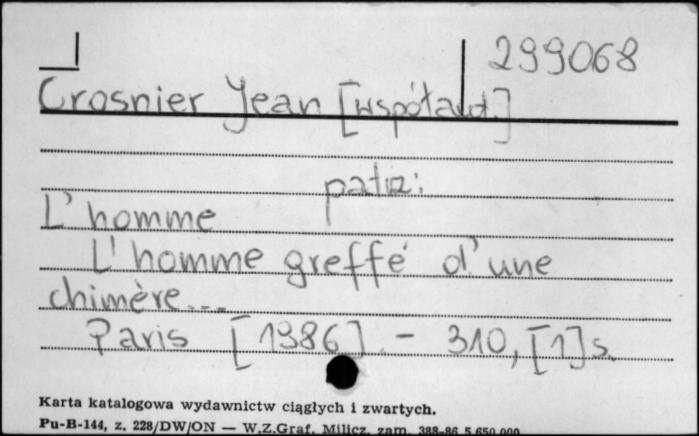 299068
Crosnier Jean [współaut.]
patrz:
L'homme
L'homme greffé d'une
chimère...
Paris [1986]. - 310, [1] s.
Karta katalogowa wydawnictw ciągłych i zwartych.
Pu-B-144, z. 228/DW/ON — W.Z.Graf. Milicz, zam. 388-86 5.650.000